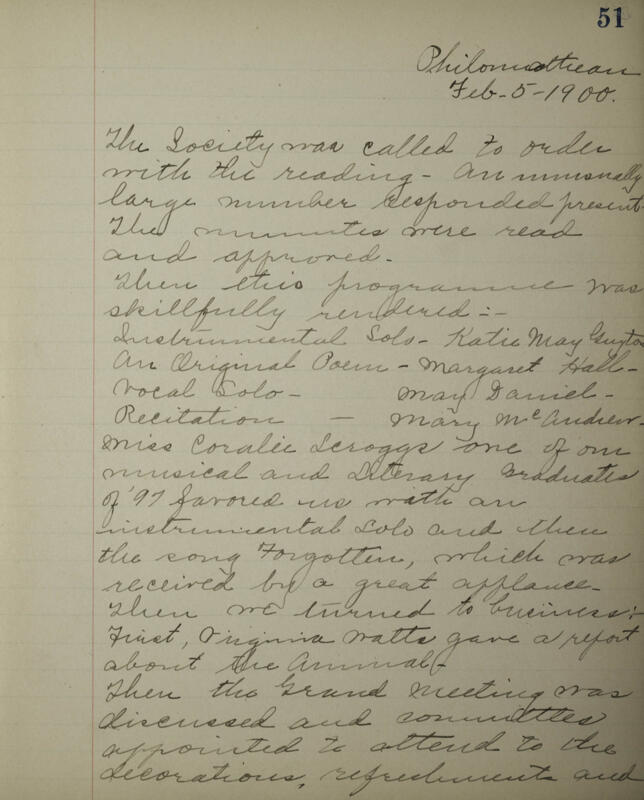 51
Philomathean
Feb-5-1900.
The Society was called to order
with the reading - An unusually
large number responded present-
The minutes were read
and approved-
Then this programme was
skillfully rendered:-
Instrumental Solo- Katie May Guyton
An Original Poem - Margaret Hall-
Vocal Solo- May Daniel-
Recitation - Mary McAndrew-
Miss Coralie Scroggs one of our
musical and Literary Graduates
of '97 favored us with an
instrumental Solo and then
the song Forgotten, which was
received by a great applause-
Then we turned to business:-
First, Virginia Watts gave a report
about the Annual-
Then the Grand Meeting was
discussed and committees
appointed to attend to the
decorations, refreshments and